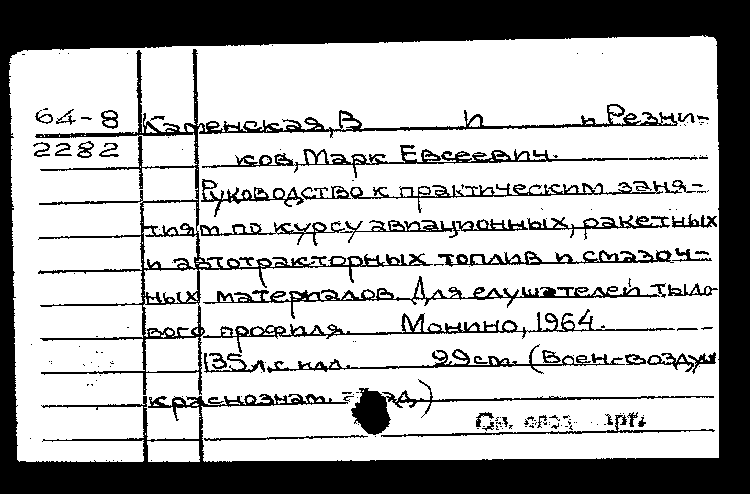 64-8 Каменская, В П и Резни-
2282 ков, Марк Евсеевич.
Руководство к практическим заня-
тиям по курсу авиационных, ракетных
и автотракторных топлив и смазоч-
ных материалов. Для слушателей тыло-
вого профиля. Монино, 1964.
135 л. с илл. 29 см. (Воен-воздуш
краснознам. акад.)
См. след.